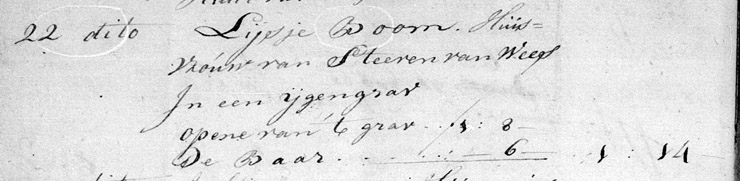 22 dito Lijsje Boom. Huÿs=
vrouw van Steeven van Weep
In een ijgen grav
opene van 't grav .. 1 : 8 -
De Baar. ... - 6 - 1 : 14
dito